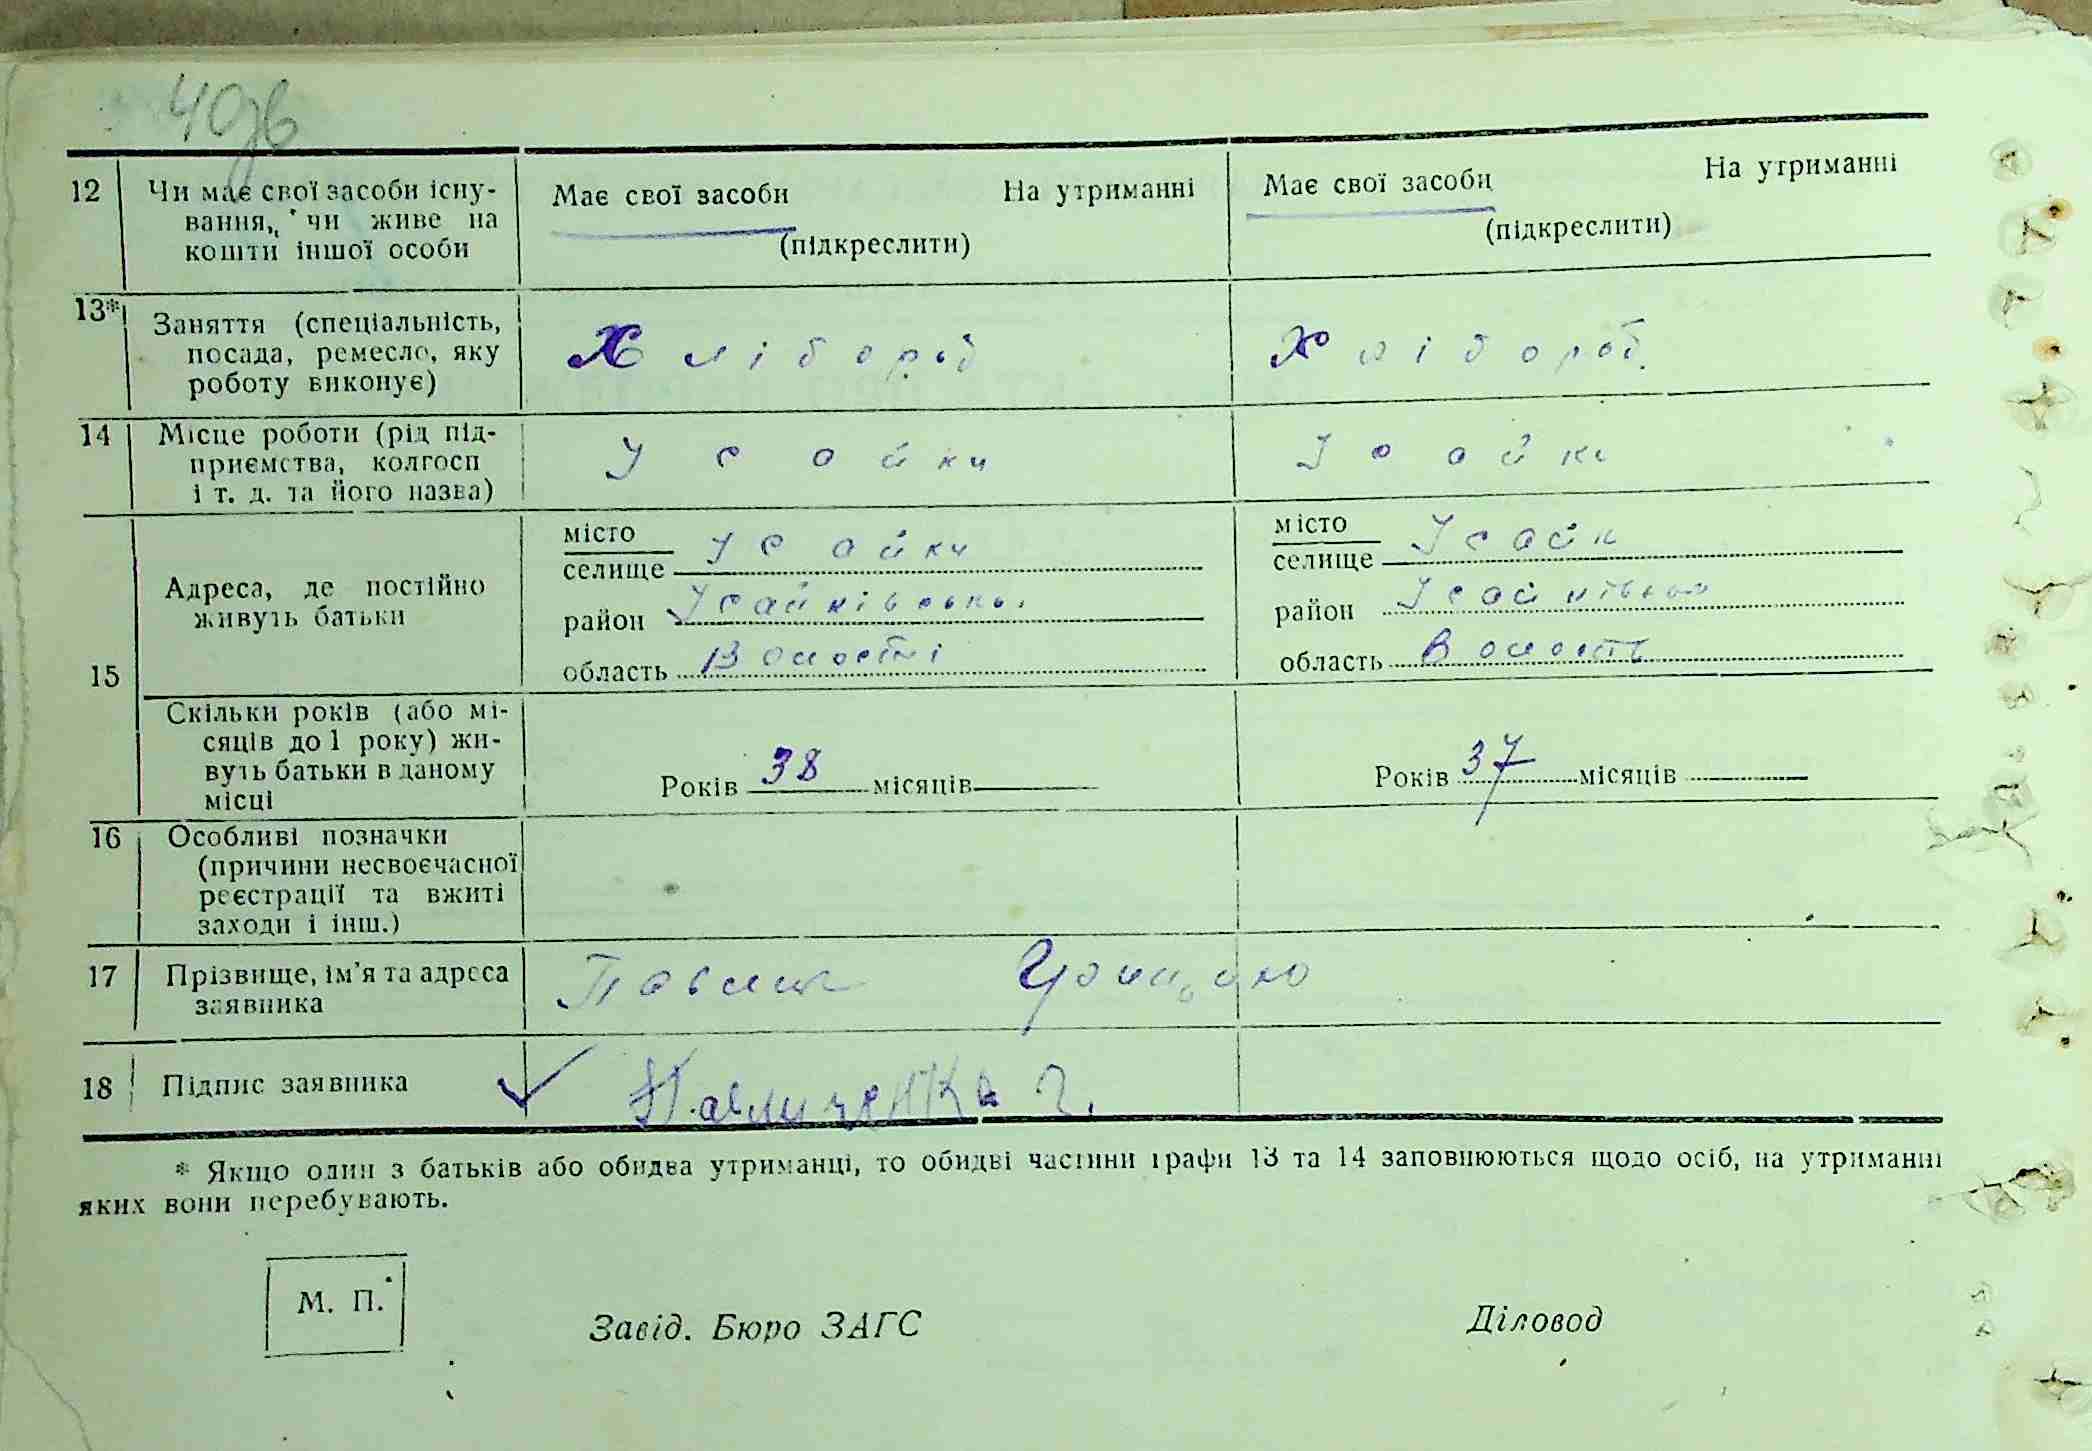 40зв
12 Чи має свої засоби існу- Має свої засоби На утриманні Має свої засоби На утриманні
вання, чи живе на (підкреслити) (підкреслити)
кошти іншої особи
13* Заняття (спеціальність, Хлібороб Хлібороб
посада, ремесло, яку
роботу виконує)
14 Місце роботи (рід під- Усайки Усайки
приємства, колгосп
і т. д. та його назва)
15 Адреса, де постійно живуть батьки
місто Усайки місто Усайк
селище селище
район район
область область
Скільки років (або мі-
сяців до 1 року) жи-
вуть батьки в даному Років 38 місяців Років 37 місяців
місці
16 Особливі позначки
(причини несвоєчасної
реєстрації та вжиті
заходи і інш.)
17 Прізвище, ім’я та адреса
заявника
18 Підпис заявника Павличенко Г.
* Якщо один з батьків або обидва утриманці, то обидві частини графи 13 та 14 заповнюються щодо осіб, на утриманні
яких вони перебувають.
М. П.
Завід. Бюро ЗАГС Діловод